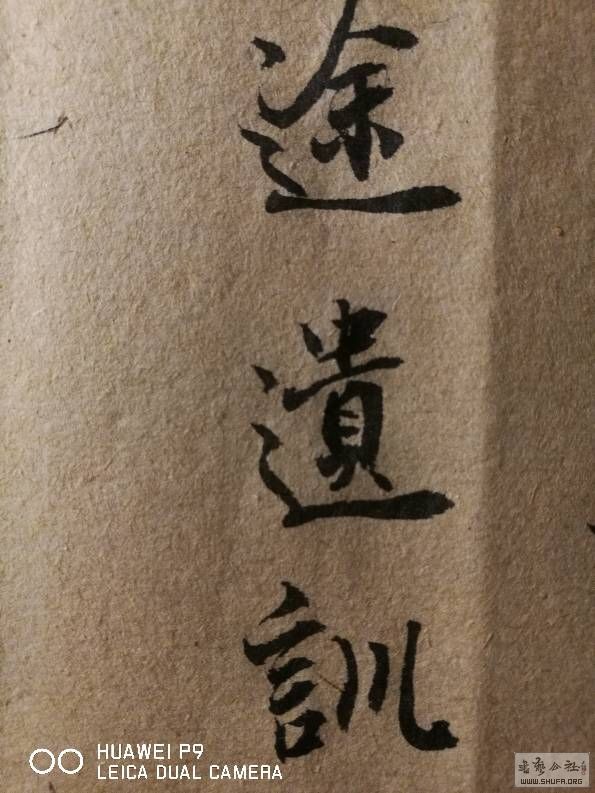 途遺訓
HUAWEI P9
LEICA DUAL CAMERA
书艺公社
WWW.SHUFA.ORG